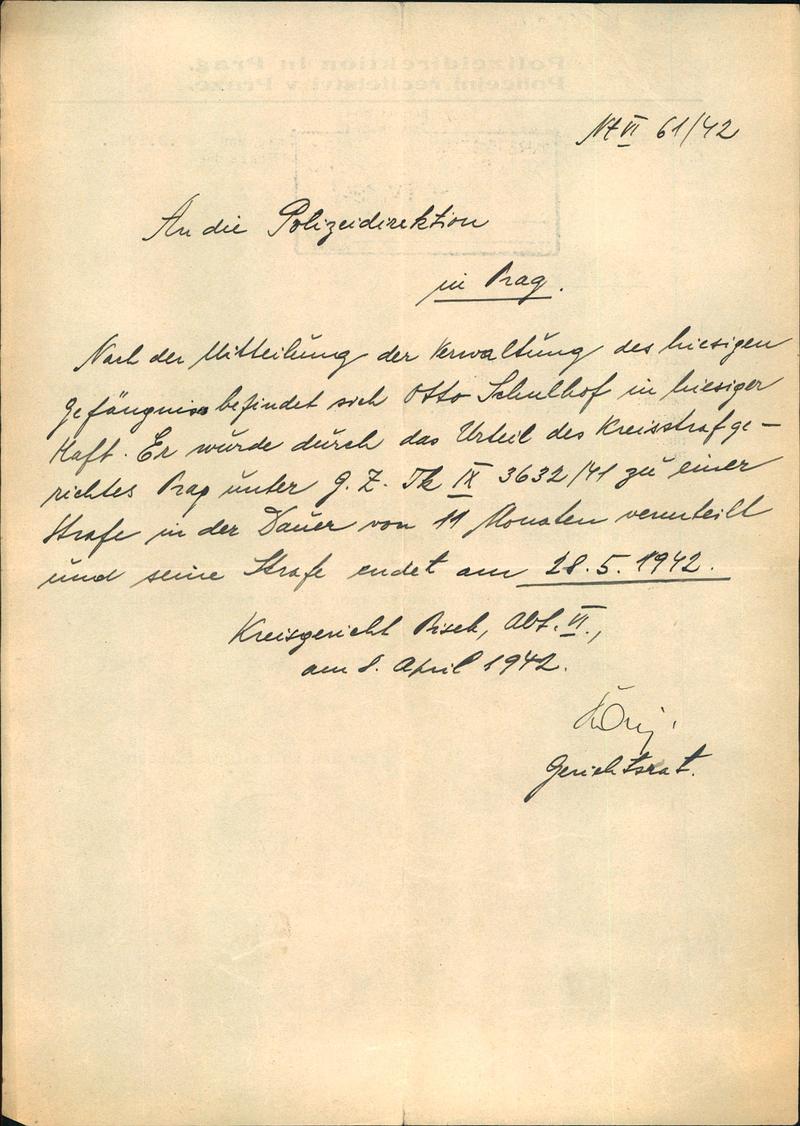 Nt VI 61/42
An die Polizeidirektion
in Prag.
Nach der Mitteilung der Verwaltung des hiesigen
Gefängniss befindet sich Otto Schulhof in hiesiger
Haft. Er wurde durch das Urteil des Kreisstrafge-
richtes Prag unter G. Z. Tk IX 3632/41 zu einer
Strafe in der Dauer von 11 Monaten verurteilt
und seine Strafe endet am 28.5.1942.
Kreisgericht Pisek, Abt. VI.,
am 8. April 1942.
Gerichtsrat.
Polizeidirektion in Prag.
Policejní ředitelství v Praze.